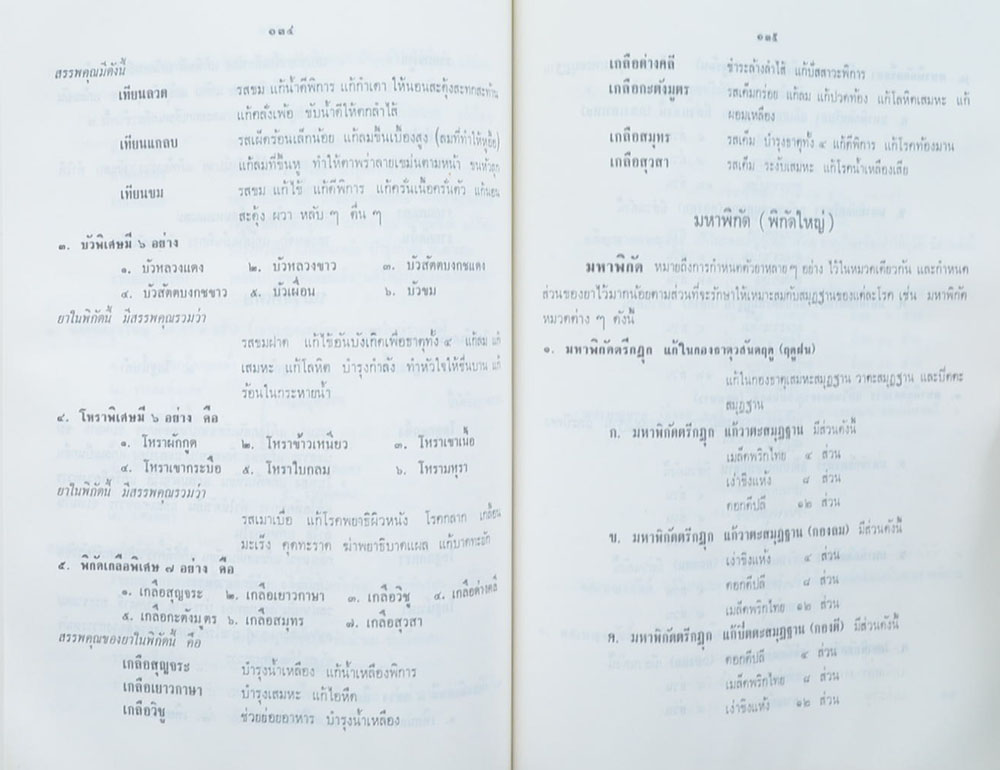 ๑๓๔
สรรพคุณมีดังนี้
เทียนลวด รสขม แก้น้ำดีพิการ แก้กำเดา ให้นอนสะดุ้งสะทกสะท้าน
แก้คลั่งเพ้อ ขับน้ำดีให้ตกลำไส้
เทียนแกลบ รสเผ็ดร้อนเล็กน้อย แก้ลมขึ้นเบื้องสูง (ลมที่ทำให้หูอื้อ)
แก้ลมที่ขึ้นหู ทำให้ตาพร่าลายเขม่นตามหน้า ขนหัวลุก
เทียนขม รสขม แก้ไข้ แก้ดีพิการ แก้ครั่นเนื้อครั่นตัว แก้นอน
สะดุ้ง ผวา หลับ ๆ ตื่น ๆ
๓. บัวพิเศษมี ๖ อย่าง
๑. บัวหลวงแดง ๒. บัวหลวงขาว ๓. บัวสัตตบงกชแดง
๔. บัวสัตตบงกชขาว ๕. บัวเผื่อน ๖. บัวขม
ยาในพิกัดนี้ มีสรรพคุณรวมว่า
รสขมฝาด แก้ไข้อันบังเกิดเพื่อธาตุทั้ง ๔ แก้ลม แก้
เสมหะ แก้โลหิต บำรุงกำลัง ทำหัวใจให้ชื่นบาน แก้
ร้อนในกระหายน้ำ
๔. โหราพิเศษมี ๖ อย่าง คือ
๑. โหราผักกูด ๒. โหราข้าวเหนียว ๓. โหราเขาเนื้อ
๔. โหราเขากระบือ ๕. โหราใบกลม ๖. โหรามหุรา
ยาในพิกัดนี้ มีสรรพคุณรวมว่า
รสเมาเบื่อ แก้โรคพยาธิผิวหนัง โรคกลาก เกลื้อน
มะเร็ง คุดทะราด ฆ่าพยาธิบาดแผล แก้บาดทะยัก
๕. พิกัดเกลือพิเศษ ๗ อย่าง คือ
๑. เกลือสุญจระ ๒. เกลือเยาวกาษา ๓. เกลือวิชู ๔. เกลือด่างคลี
๕. เกลือกะตังมูตร ๖. เกลือสมุทร ๗. เกลือสุวสา
สรรพคุณของยาในพิกัดนี้ คือ
เกลือสุญจระ บำรุงน้ำเหลือง แก้น้ำเหลืองพิการ
เกลือเยาวกาษา บำรุงเสมหะ แก้ไอหืด
เกลือวิชู ช่วยย่อยอาหาร บำรุงน้ำเหลือง
๑๓๕
เกลือด่างคลี ชำระล้างลำไส้ แก้ปัสสาวะพิการ
เกลือกะตังมูตร รสเค็มกร่อย แก้ลม แก้ปวดท้อง แก้โลหิตเสมหะ แก้
ผอมเหลือง
เกลือสมุทร รสเค็ม บำรุงธาตุทั้ง ๔ แก้ดีพิการ แก้โรคท้องมาน
เกลือสุวสา รสเค็ม ระงับเสมหะ แก้โรคน้ำเหลืองเสีย
มหาพิกัด (พิกัดใหญ่)
มหาพิกัด หมายถึงการกำหนดตัวยาหลายๆ อย่าง ไว้ในหมวดเดียวกัน และกำหนด
ส่วนของยาไว้มากน้อยตามส่วนที่จะรักษาให้เหมาะสมกับสมุฏฐานของแต่ละโรค เช่น มหาพิกัด
หมวดต่าง ๆ ดังนี้
๑. มหาพิกัดตรีกฏุก แก้ในกองธาตุวสันตฤดู (ฤดูฝน)
แก้ในกองธาตุเสมหะสมุฏฐาน วาตะสมุฏฐาน และปิตตะ
สมุฏฐาน
ก. มหาพิกัดตรีกฏุก แก้วาตะสมุฏฐาน มีส่วนดังนี้
เมล็ดพริกไทย ๔ ส่วน
เง่าขิงแห้ง ๘ ส่วน
ดอกดีปลี ๑๒ ส่วน
ข. มหาพิกัดตรีกฏุก แก้วาตะสมุฏฐาน (กองลม) มีส่วนดังนี้
เง่าขิงแห้ง ๔ ส่วน
ดอกดีปลี ๘ ส่วน
เมล็ดพริกไทย ๑๒ ส่วน
ค. มหาพิกัดตรีกฏุก แก้ปิตตะสมุฏฐาน (กองดี) มีส่วนดังนี้
ดอกดีปลี ๔ ส่วน
เมล็ดพริกไทย ๘ ส่วน
เง่าขิงแห้ง ๑๒ ส่วน